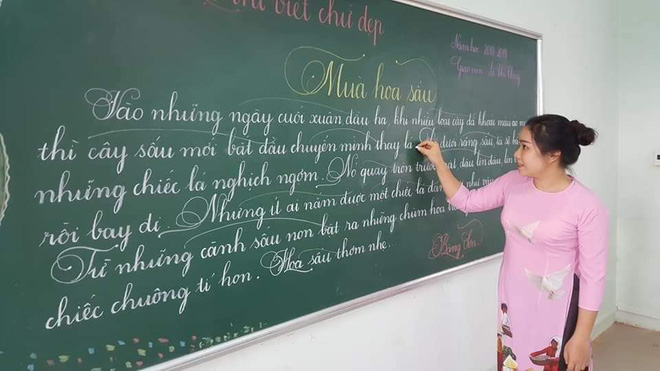 viết chữ đẹp
Năm học 2018-2019
Giáo viên:
Mùa hoa sấu
Vào những ngày cuối xuân đầu hạ, khi nhiều loài cây đã khoác màu áo m
thì cây sấu mới bắt đầu chuyển mình thay lá. dưới hàng sấu, ta sẽ
những chiếc lá nghịch ngợm. Nó quay tròn trước bắt đầu lên đầu,
rồi bay đi. Nhưng ít ai nắm được một chiếc lá đang rơi như
Từ những cành sấu non bật ra những chùm hoa
chiếc chuông tí hon. Hoa sấu thơm nhẹ.